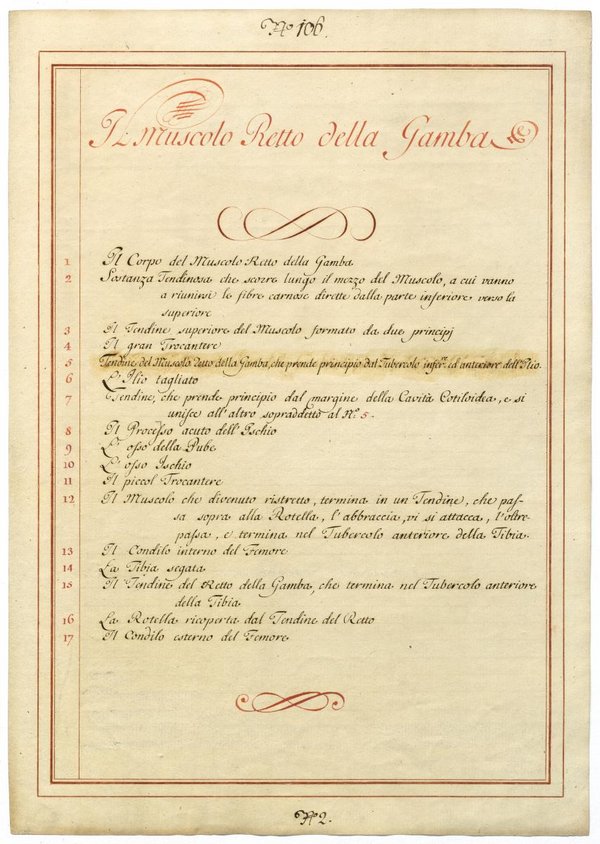 Nº 106.
Il Muscolo Retto della Gamba
1 Il Corpo del Muscolo Retto della Gamba
2 Sostanza Tendinosa che scorre lungo il mezzo del Muscolo, a cui vanno
a riunirsi le fibre carnose dirette dalla parte inferiore verso la
superiore
3 Il Tendine superiore del Muscolo formato da due principj
4 Il gran Trocantere
5 Tendine del Muscolo Retto della Gamba, che prende principio dal Tubercolo infer.re ed anteriore dell'Ilio.
6 L'Ilio tagliato
7 Tendine, che prende principio dal margine della Cavità Cotiloidea, e si
unisce all'altro sopraddetto al Nº 5.
8 Il Processo acuto dell'Ischio
9 L'osso della Pube
10 L'osso Ischio
11 Il piccol Trocantere
12 Il Muscolo che divenuto ristretto, termina in un Tendine, che pas-
sa sopra alla Rotella, l'abbraccia, vi si attacca, l'oltre-
passa, e termina nel Tubercolo anteriore della Tibia.
13 Il Condilo interno del Femore
14 La Tibia segata
15 Il Tendine del Retto della Gamba, che termina nel Tubercolo anteriore
della Tibia
16 La Rotella ricoperta dal Tendine del Retto
17 Il Condilo esterno del Femore
Nº 2.